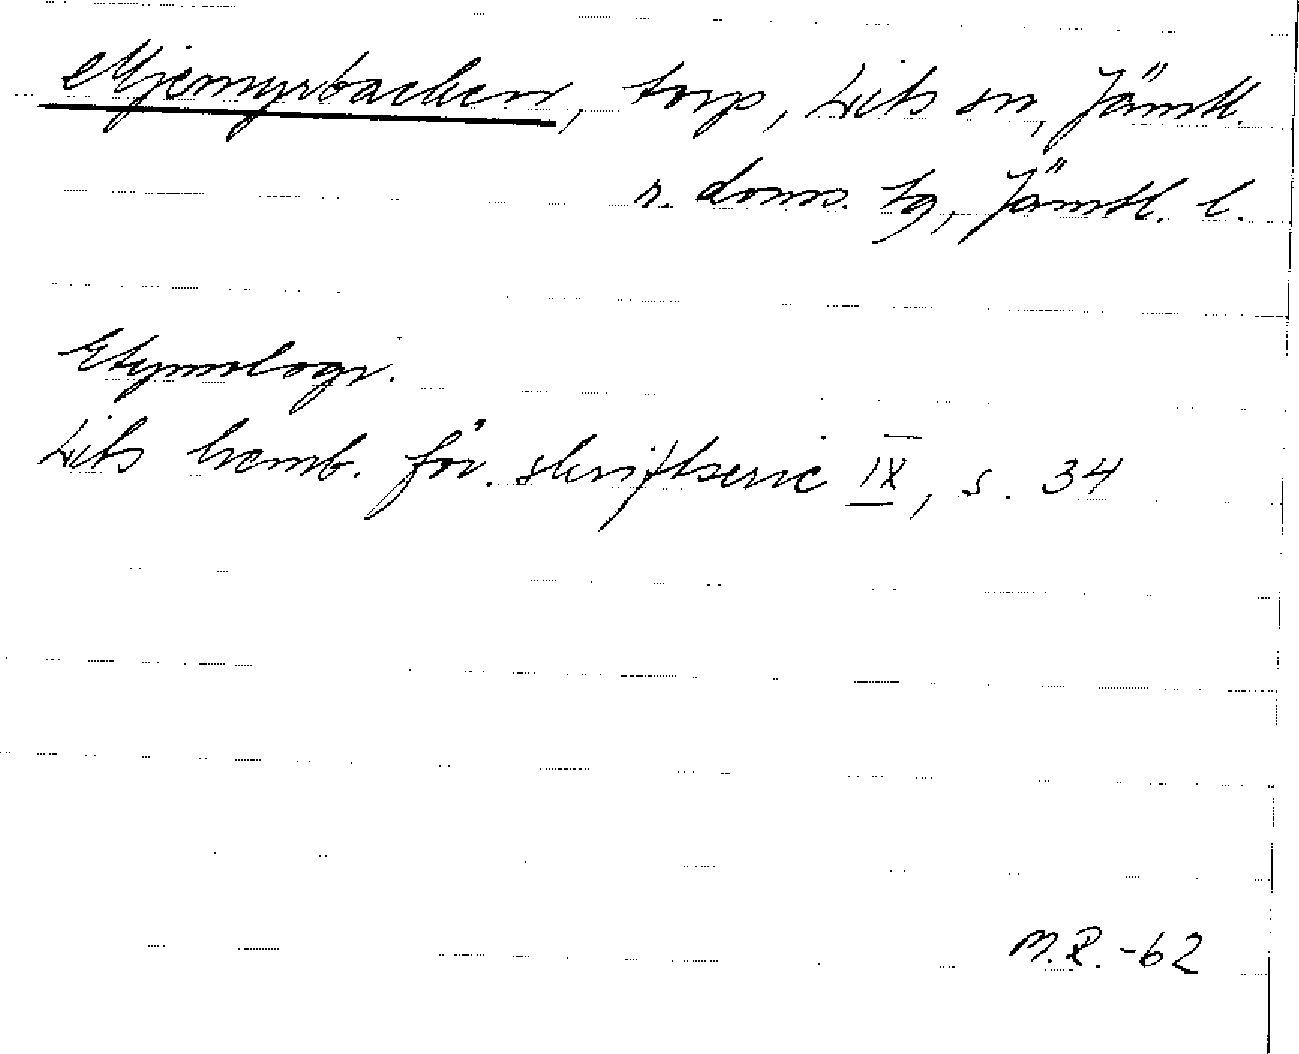 Mjemyrbacken, torp, Lits sn, Jämtl.
n. doms. tg, Jämtl. l.
Etymologi.
Lits hemb. för. skriftserie IX, s. 34
M.R. -62